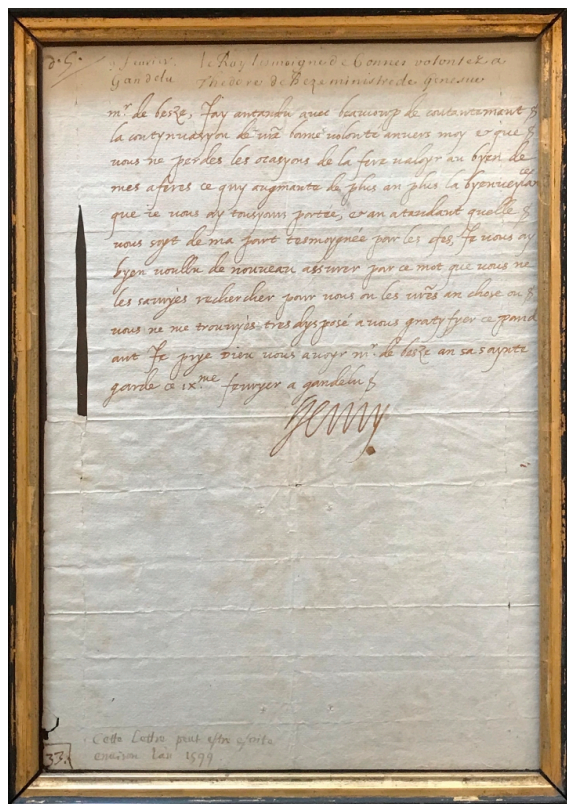 le Roy tesmoigne de bonnes volontez a
Gandelu Theodore de Beze ministre de Geneue
mr. de besze, Jay antandu auec beaucoup de contantemant
la contynuasyon de vre bonne volonte anuers moy & que
vous ne perdes les ocasyons de la fere valoyr au byen de
mes aferes ce quy augmante de plus an plus la byenueyllance
que ie vous ay tousyours portée, & an atandant quelle
vous soyt de ma part tesmoygnée par les efes, Je vous ay
byen voullu de nouueau assurer par ce mot que vous ne
les sauryés rechercher pour vous ou les vres an chose ou
vous ne me trouuyés tres dysposé a vous gratyfyer ce pand
ant Je prye Dieu vous auoyr mr. de besze an sa saynte
garde ce ix.me feuryer a gandelu
Henry
Cette Lettre peut estre escrite
enuiron l'an 1599
33.